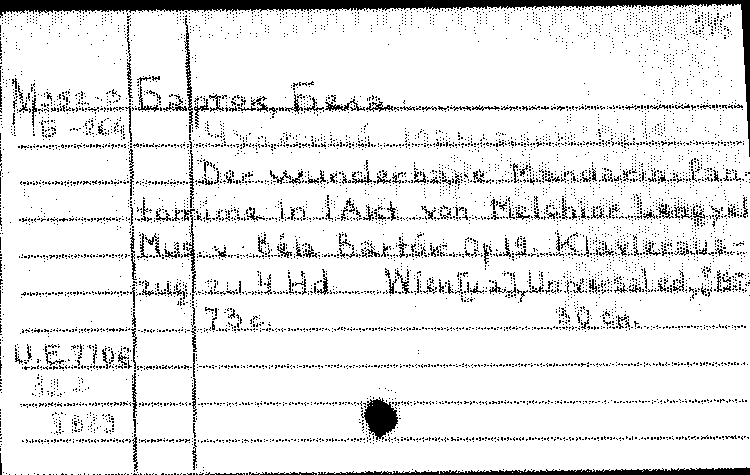 М 382-3 Барток, Бела.
Б-264 Чудесный мандарин
Der wunderbare Mandarin. Pan-
tomime in 1 Akt von Melchior Lengyel
Mus. v. Béla Bartók Op. 19. Klavieraus-
zug zu 4 Hd Wien [u.a.], Universal ed.,
73 c. 30 см.
U.E. 7706